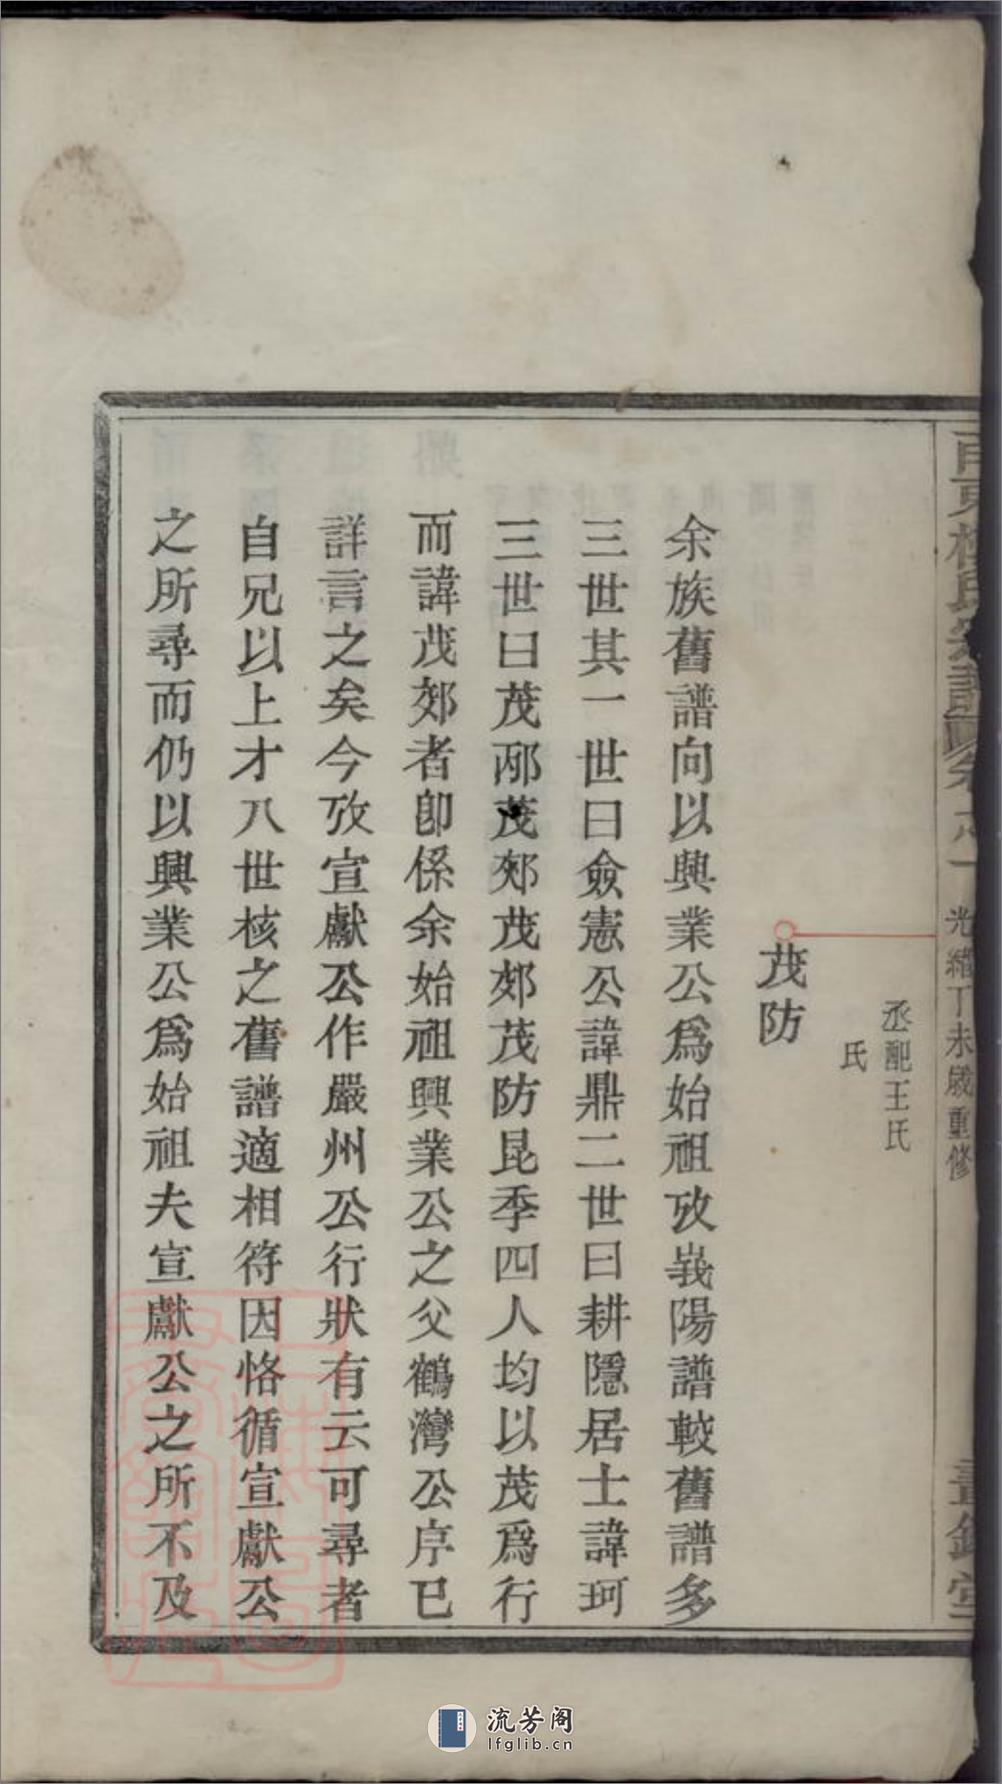 氏宗譜卷之一 光緒丁未歲重修
丞配王氏
氏
茂防
余族舊譜向以興業公爲始祖攷峩陽譜較舊譜多
三世其一世曰僉憲公諱鼎二世曰耕隱居士諱珂
三世曰茂邴茂郟茂郊茂防昆季四人均以茂爲行
而諱茂郊者卽係余始祖興業公之父鶴灣公序已
詳言之矣今攷宣獻公作嚴州公行狀有云可尋者
自兄以上才八世核之舊譜適相符因恪循宣獻公
之所尋而仍以興業公爲始祖夫宣獻公之所不及
流芳阁
lfglib.cn